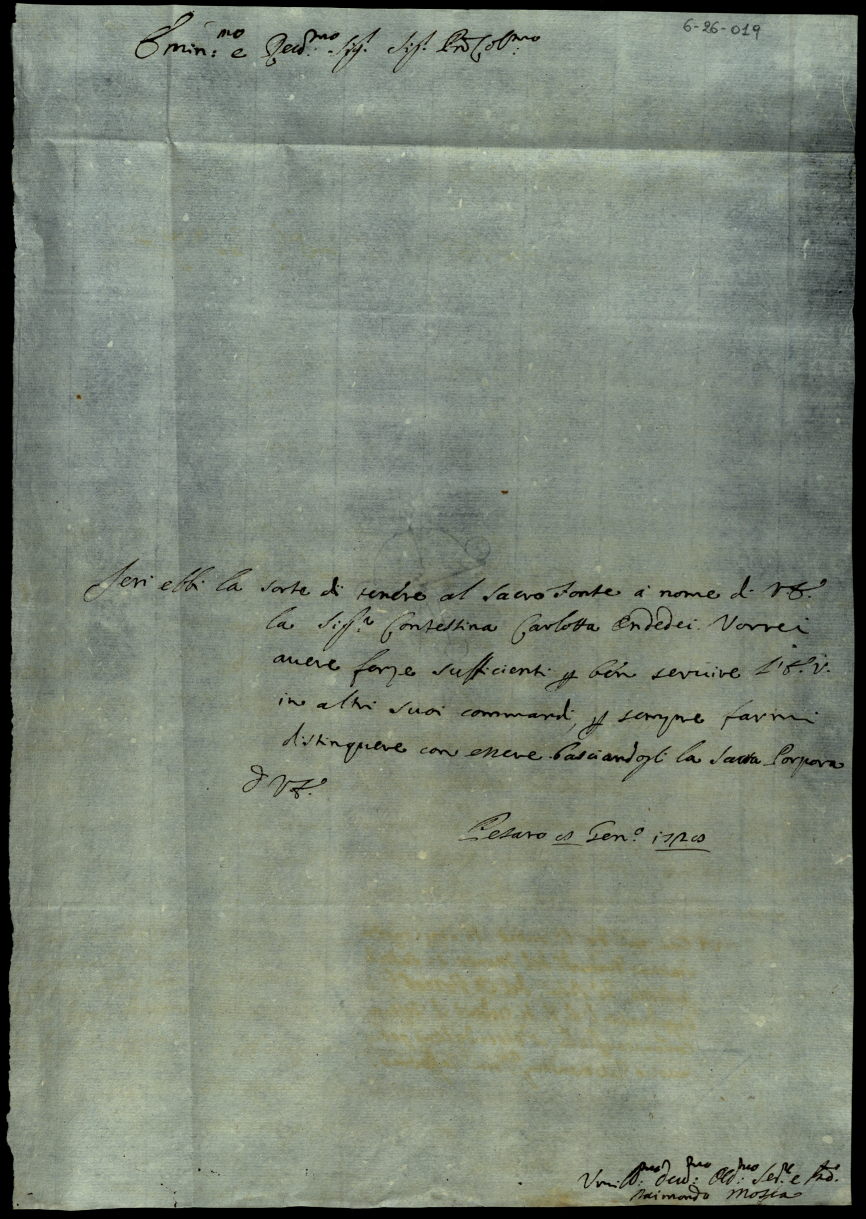 6-26-019
Emin:mo e Reud:mo Sigr. Sigr. Prōn Colmo
Ieri ebbi la sorte di tenere al Sacro Fonte à nome di VE.
la Sigra Contessina Carlotta Ondedei. Vorrei
auere forze sufficienti p ben seruire l'E. V.
in altri suoi commandi, p sempre farmi
distinguere con essere basciandogli la Sacra Porpora
d VE.
Pesaro 8 Gen.o 1728
Vmil:mo deu:mo Obl:mo Ser.e e
Raimondo Mosca